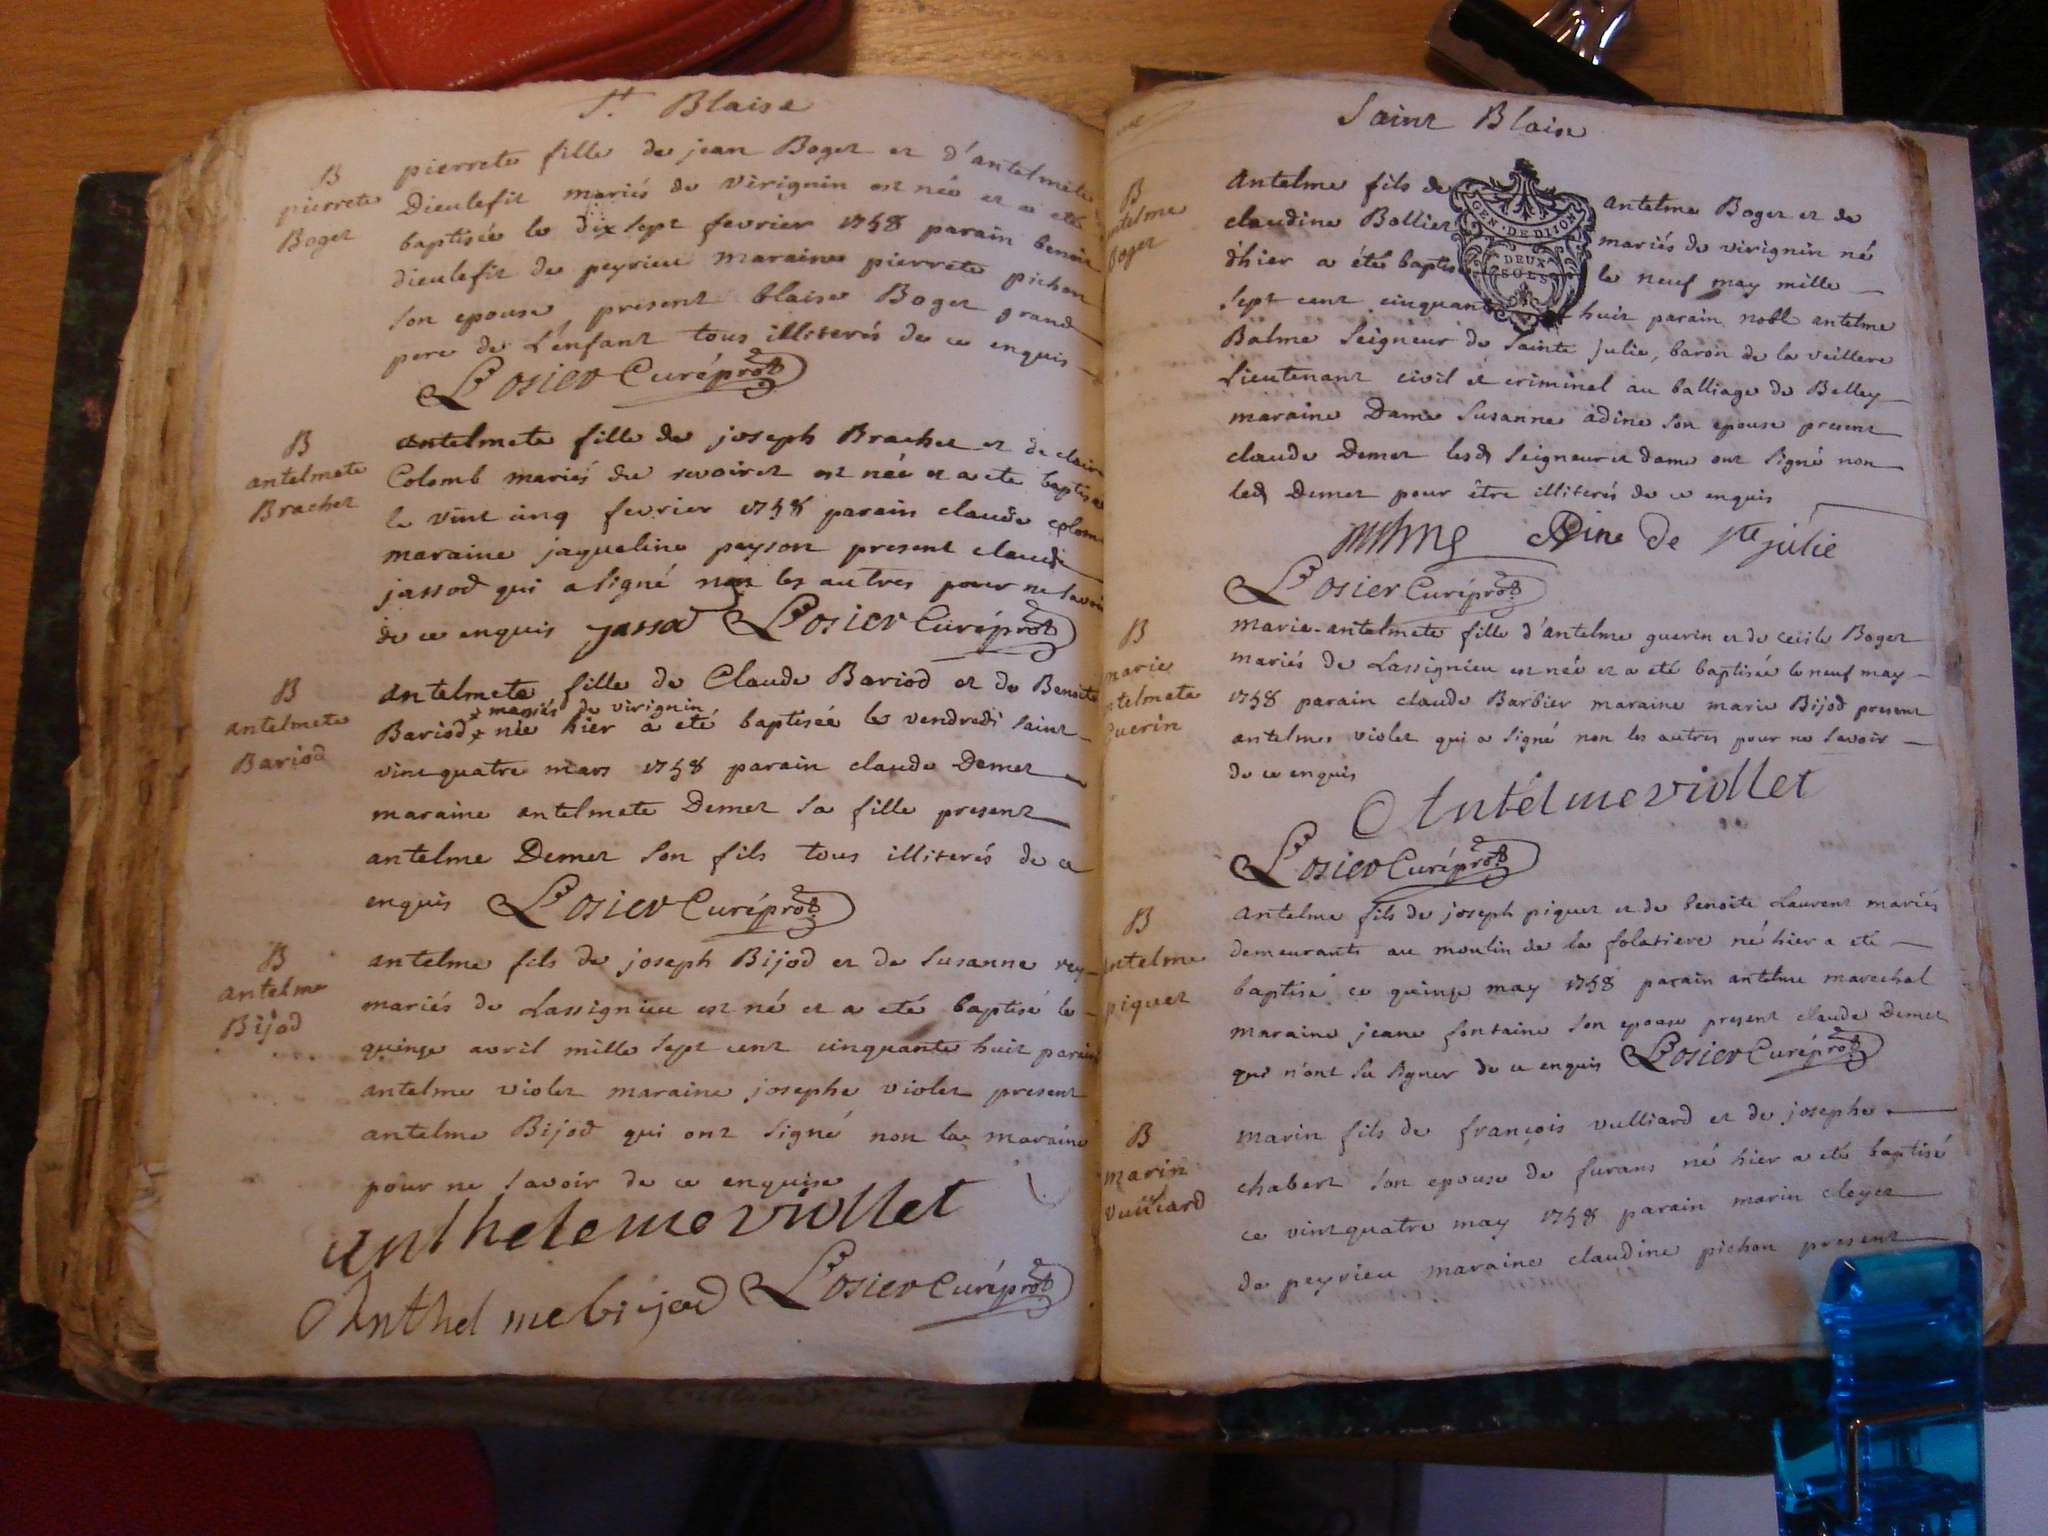 St. Blaise
B
pierrete
Boget
pierrete fille de jean Boget et d'antelmete
Dieulefit mariés de virignin est née et a eté
baptisée le dix sept fevrier 1758 parain benoit
dieulefit de peyrieu maraine pierrete pichon
son epouse, present blaise Boget grand
pere de L'enfant tous illiterés de ce enquis
L'osier Curé prot.
B
antelmete
Brachet
antelmete fille de joseph Brachet et de claire
Colomb mariés du revoiret est née et a eté baptisée
le vint cinq fevrier 1758 parain claude colomb
maraine jaqueline peyson present claude
jassod qui a signé non les autres pour ne savoir
de ce enquis jassod L'osier Curé prot.
B
antelmete
Bariod
antelmete fille de Claude Bariod et de Benoite
mariés de virignin
Bariod née hier a eté baptisée le vendredi saint
vint quatre mars 1758 parain claude Demet
maraine antelmete Demet sa fille present
antelme Demet son fils tous illiterés de ce
enquis L'osier Curé prot.
B
antelme
Bijod
antelme fils de joseph Bijod et de Susanne rey
mariés de Lassignieu est né et a eté baptisé le
quinze avril mille sept cent cinquante huit parain
antelme violet maraine josephe violet present
antelme Bijod qui ont signé non la maraine
pour ne savoir de ce enquise
antheleme viollet
Anthelme bijod L'osier Curé prot.
Saint Blaise
B
antelme
Boget
GEN. DE DIJON
DEUX
SOLS
antelme fils de antelme Boget et de
claudine Bollier mariés de virignin né
d'hier a été baptisé le neuf may mille
sept cent cinquante huit parain noble antelme
Balme Seigneur de Sainte julie, baron de la veillere
Lieutenant civil et criminel au balliage de Belley
maraine Dame Susanne adine son epouse present
claude Demet lesd Seigneur et dame ont signé non
led Demet pour être illiterés de ce enquis
Dine de Ste julie
L'osier Curé prot.
B
marie
antelmete
guerin
marie-antelmete fille d'antelme guerin et de cecile Boget
mariés de Lassignieu est née et a eté baptisée le neuf may
1758 parain claude Barbier maraine marie Bijod present
antelme violet qui a signé non les autres pour ne savoir
de ce enquis
Antelme viollet
L'osier Curé prot.
B
antelme
piquet
antelme fils de joseph piquet et de benoite Laurent mariés
demeurants au moulin de la folatiere né hier a eté
baptisé ce quinze may 1758 parain antelme marechal
maraine jeane fontaine son epouse present claude Demet
qui n'ont su signer de ce enquis L'osier Curé prot.
B
marin
vulliard
marin fils de françois vulliard et de josephe
chabert son epouse de furans né hier a eté baptisé
ce vint quatre may 1758 parain marin cleyet
de peyrieu maraine claudine pichon present